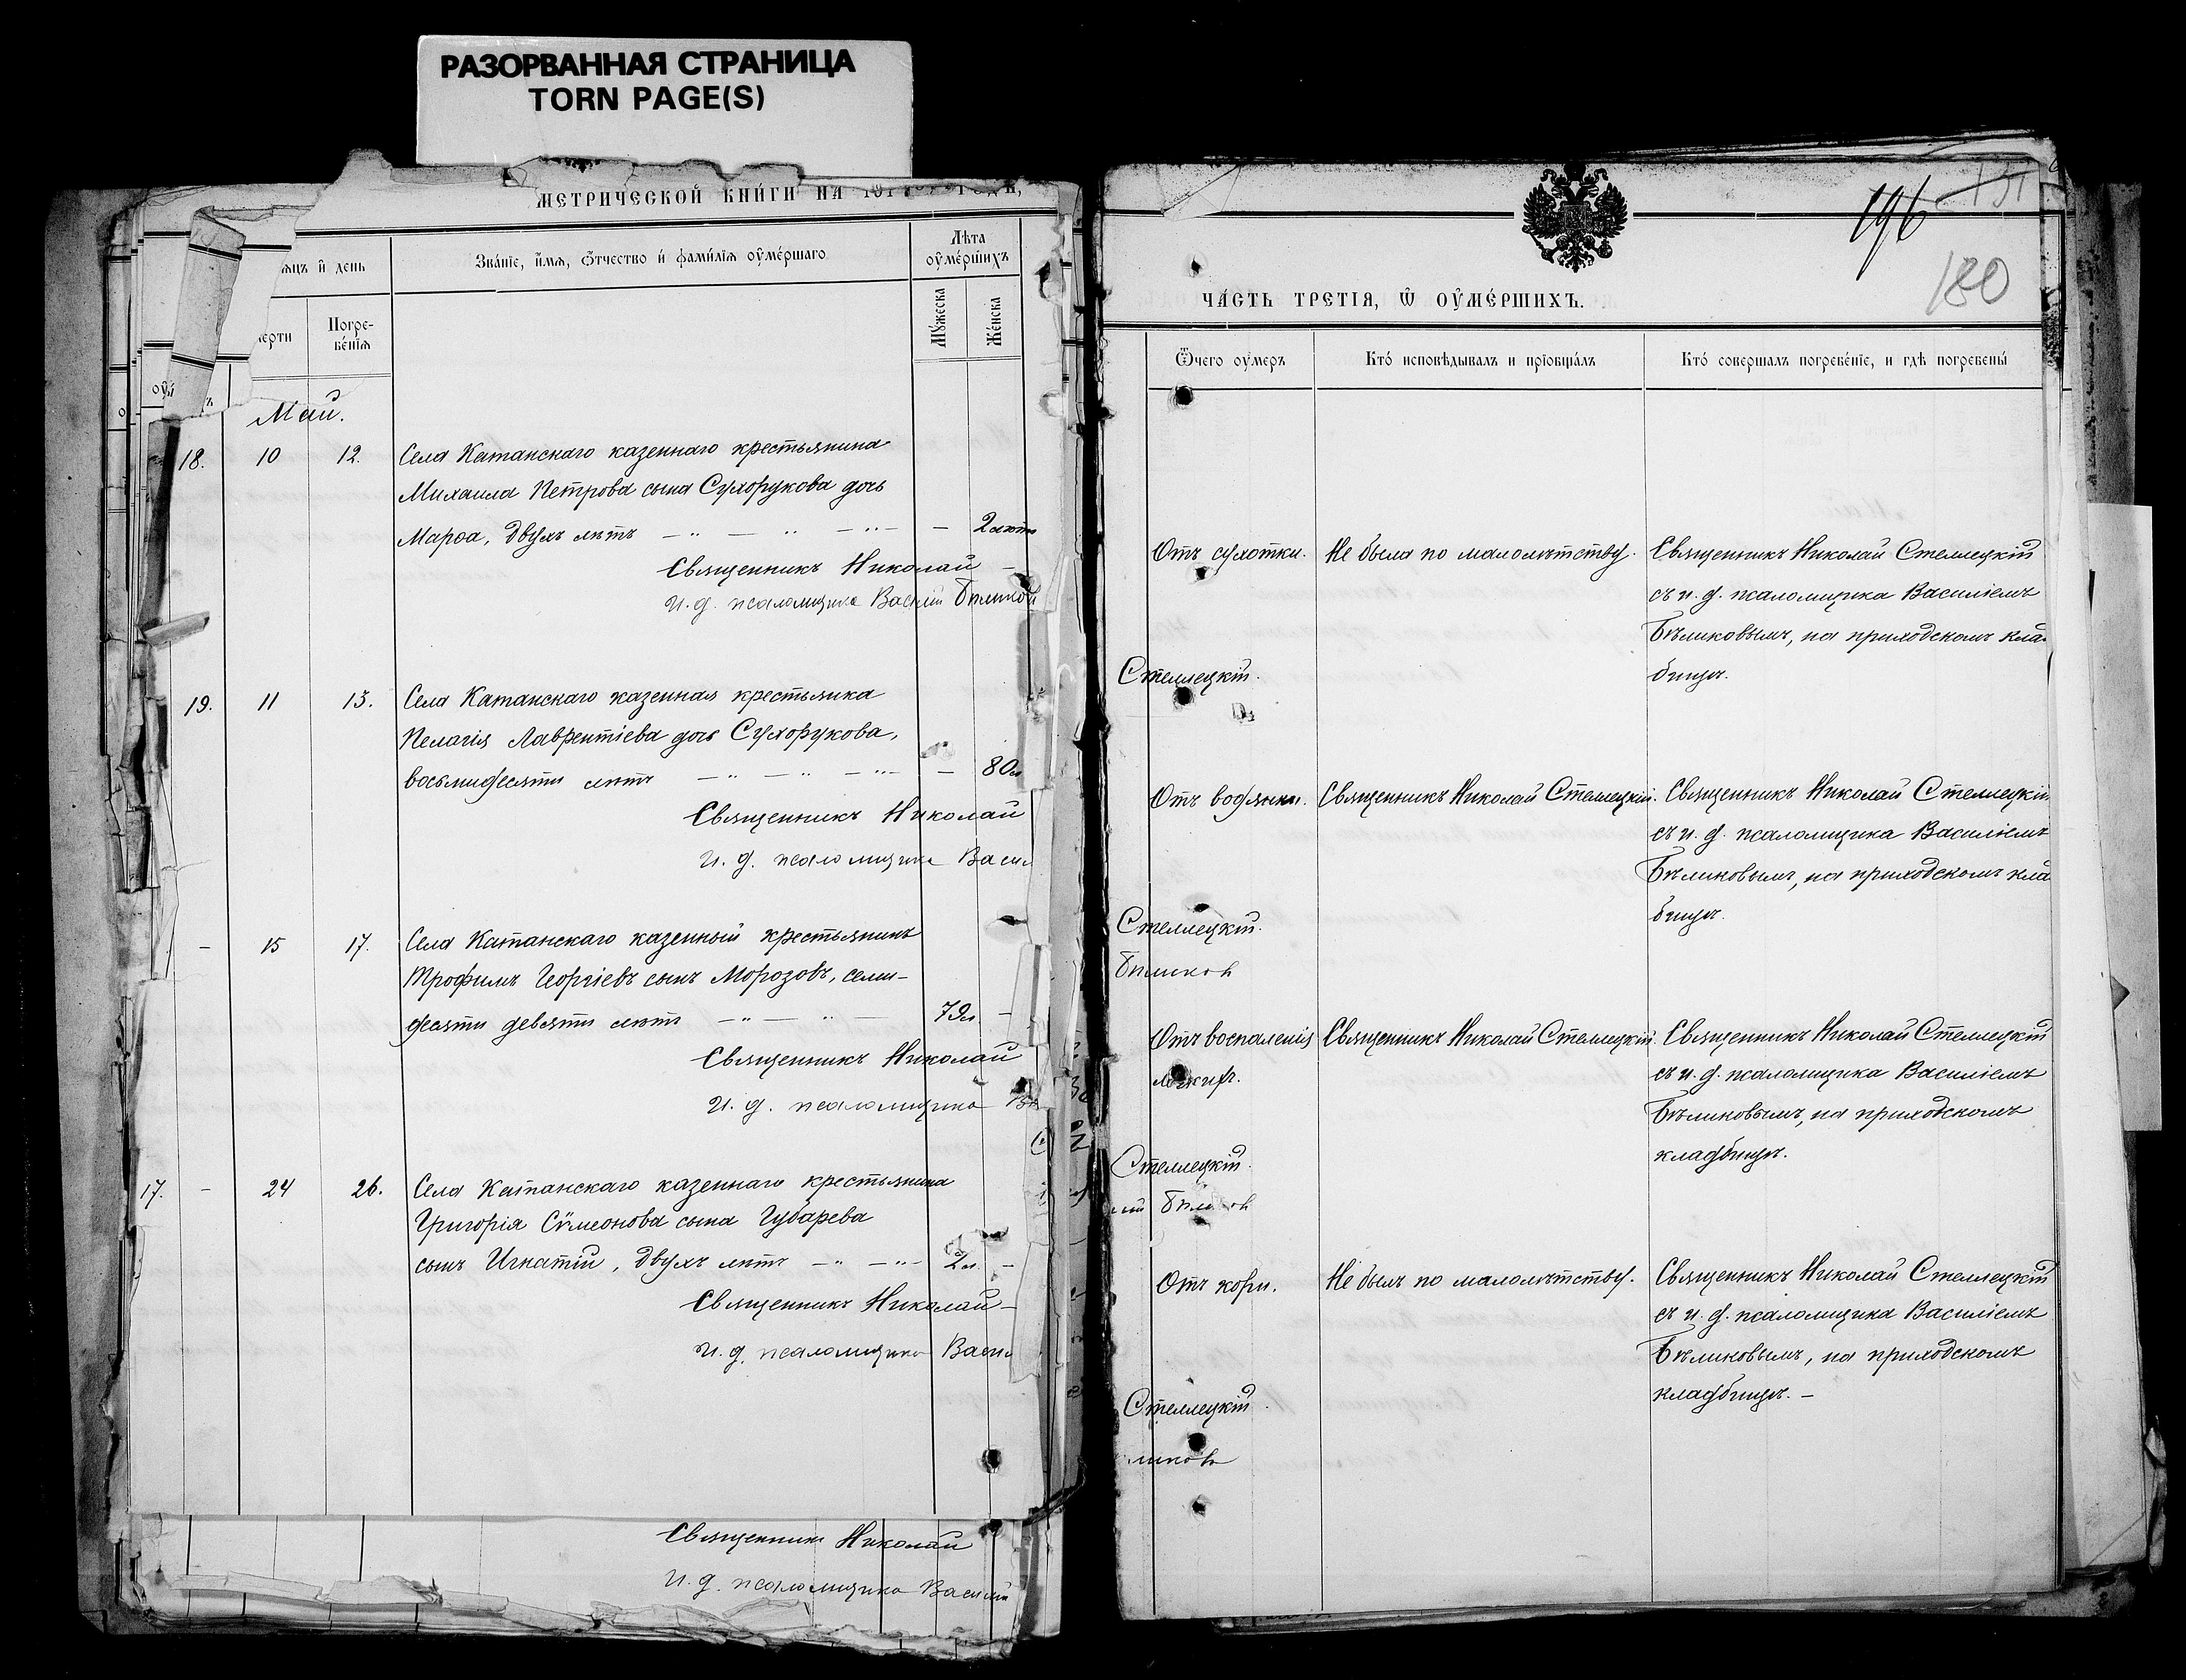 РАЗОРВАННАЯ СТРАНИЦА
TORN PAGE(S)
МЕТРИЧЕСКОЙ КНИГИ НА
яцъ и день
ерти
Погре-
бенїѧ
Званїе, имѧ, ѿчество и фамилїѧ оумершаго
Лѣта
оумершихъ
Мꙋжеска
Женска
Май.
18. 10 12. Села Катанскаго казеннаго крестьянина
Михаила Петрова сына Сухорукова дочь
Марѳа, двухъ лѣтъ — " — " — " — — 2 лѣтъ
Священникъ Николай —
И. д. псаломщика Василій Бѣликовъ
19. 11 13. Села Катанскаго казенная крестьянка
Пелагія Лаврентіева дочь Сухорукова,
восьмидесяти лѣтъ — " — " — " — — 80 л
Священникъ Николай
И. д. псаломщика Васил
- 15 17. Села Катанскаго казенный крестьянинъ
Трофимъ Георгіевъ сынъ Морозовъ, семи-
десяти девяти лѣтъ — " — " — 79 л. —
Священникъ Николай
И. д. псаломщика
17. - 24 26. Села Катанскаго казеннаго крестьянина
Григорія Сѵмеонова сына Губарева
сынъ Игнатій, двухъ лѣтъ — " — " — 2 л. —
Священникъ Николай —
И. д. псаломщика Васил
Священникъ Николай
И. д. псаломщика Василій
196
180
ЧАСТЬ ТРЕТІѦ, Ѡ ОУМЕРШИХЪ.
Ѿчего оумеръ
Кто исповѣдывалъ и прїобщалъ
Кто совершалъ погребенїе, и гдѣ погребены
Отъ сухотки. Не была по малолѣтству. Священникъ Николай Стеллецкій
съ и. д. псаломщика Василіемъ
Бѣликовымъ, на приходскомъ клад-
бищѣ.
Стеллецкій.
Отъ водянки. Священникъ Николай Стеллецкій. Священникъ Николай Стеллецкій
съ и. д. псаломщика Василіемъ
Бѣликовымъ, на приходскомъ клад
бищѣ.
Стеллецкій.
Бѣликовъ
Отъ воспаленія Священникъ Николай Стеллецкій. Священникъ Николай Стеллецкій
легкихъ. съ и. д. псаломщика Василіемъ
Бѣликовымъ, на приходскомъ
кладбищѣ.
Стеллецкій.
ій Бѣликовъ
Отъ кори. Не былъ по малолѣтству. Священникъ Николай Стеллецкій
съ и. д. псаломщика Василіемъ
Бѣликовымъ, на приходскомъ
кладбищѣ. —
Стеллецкій.
ликовъ